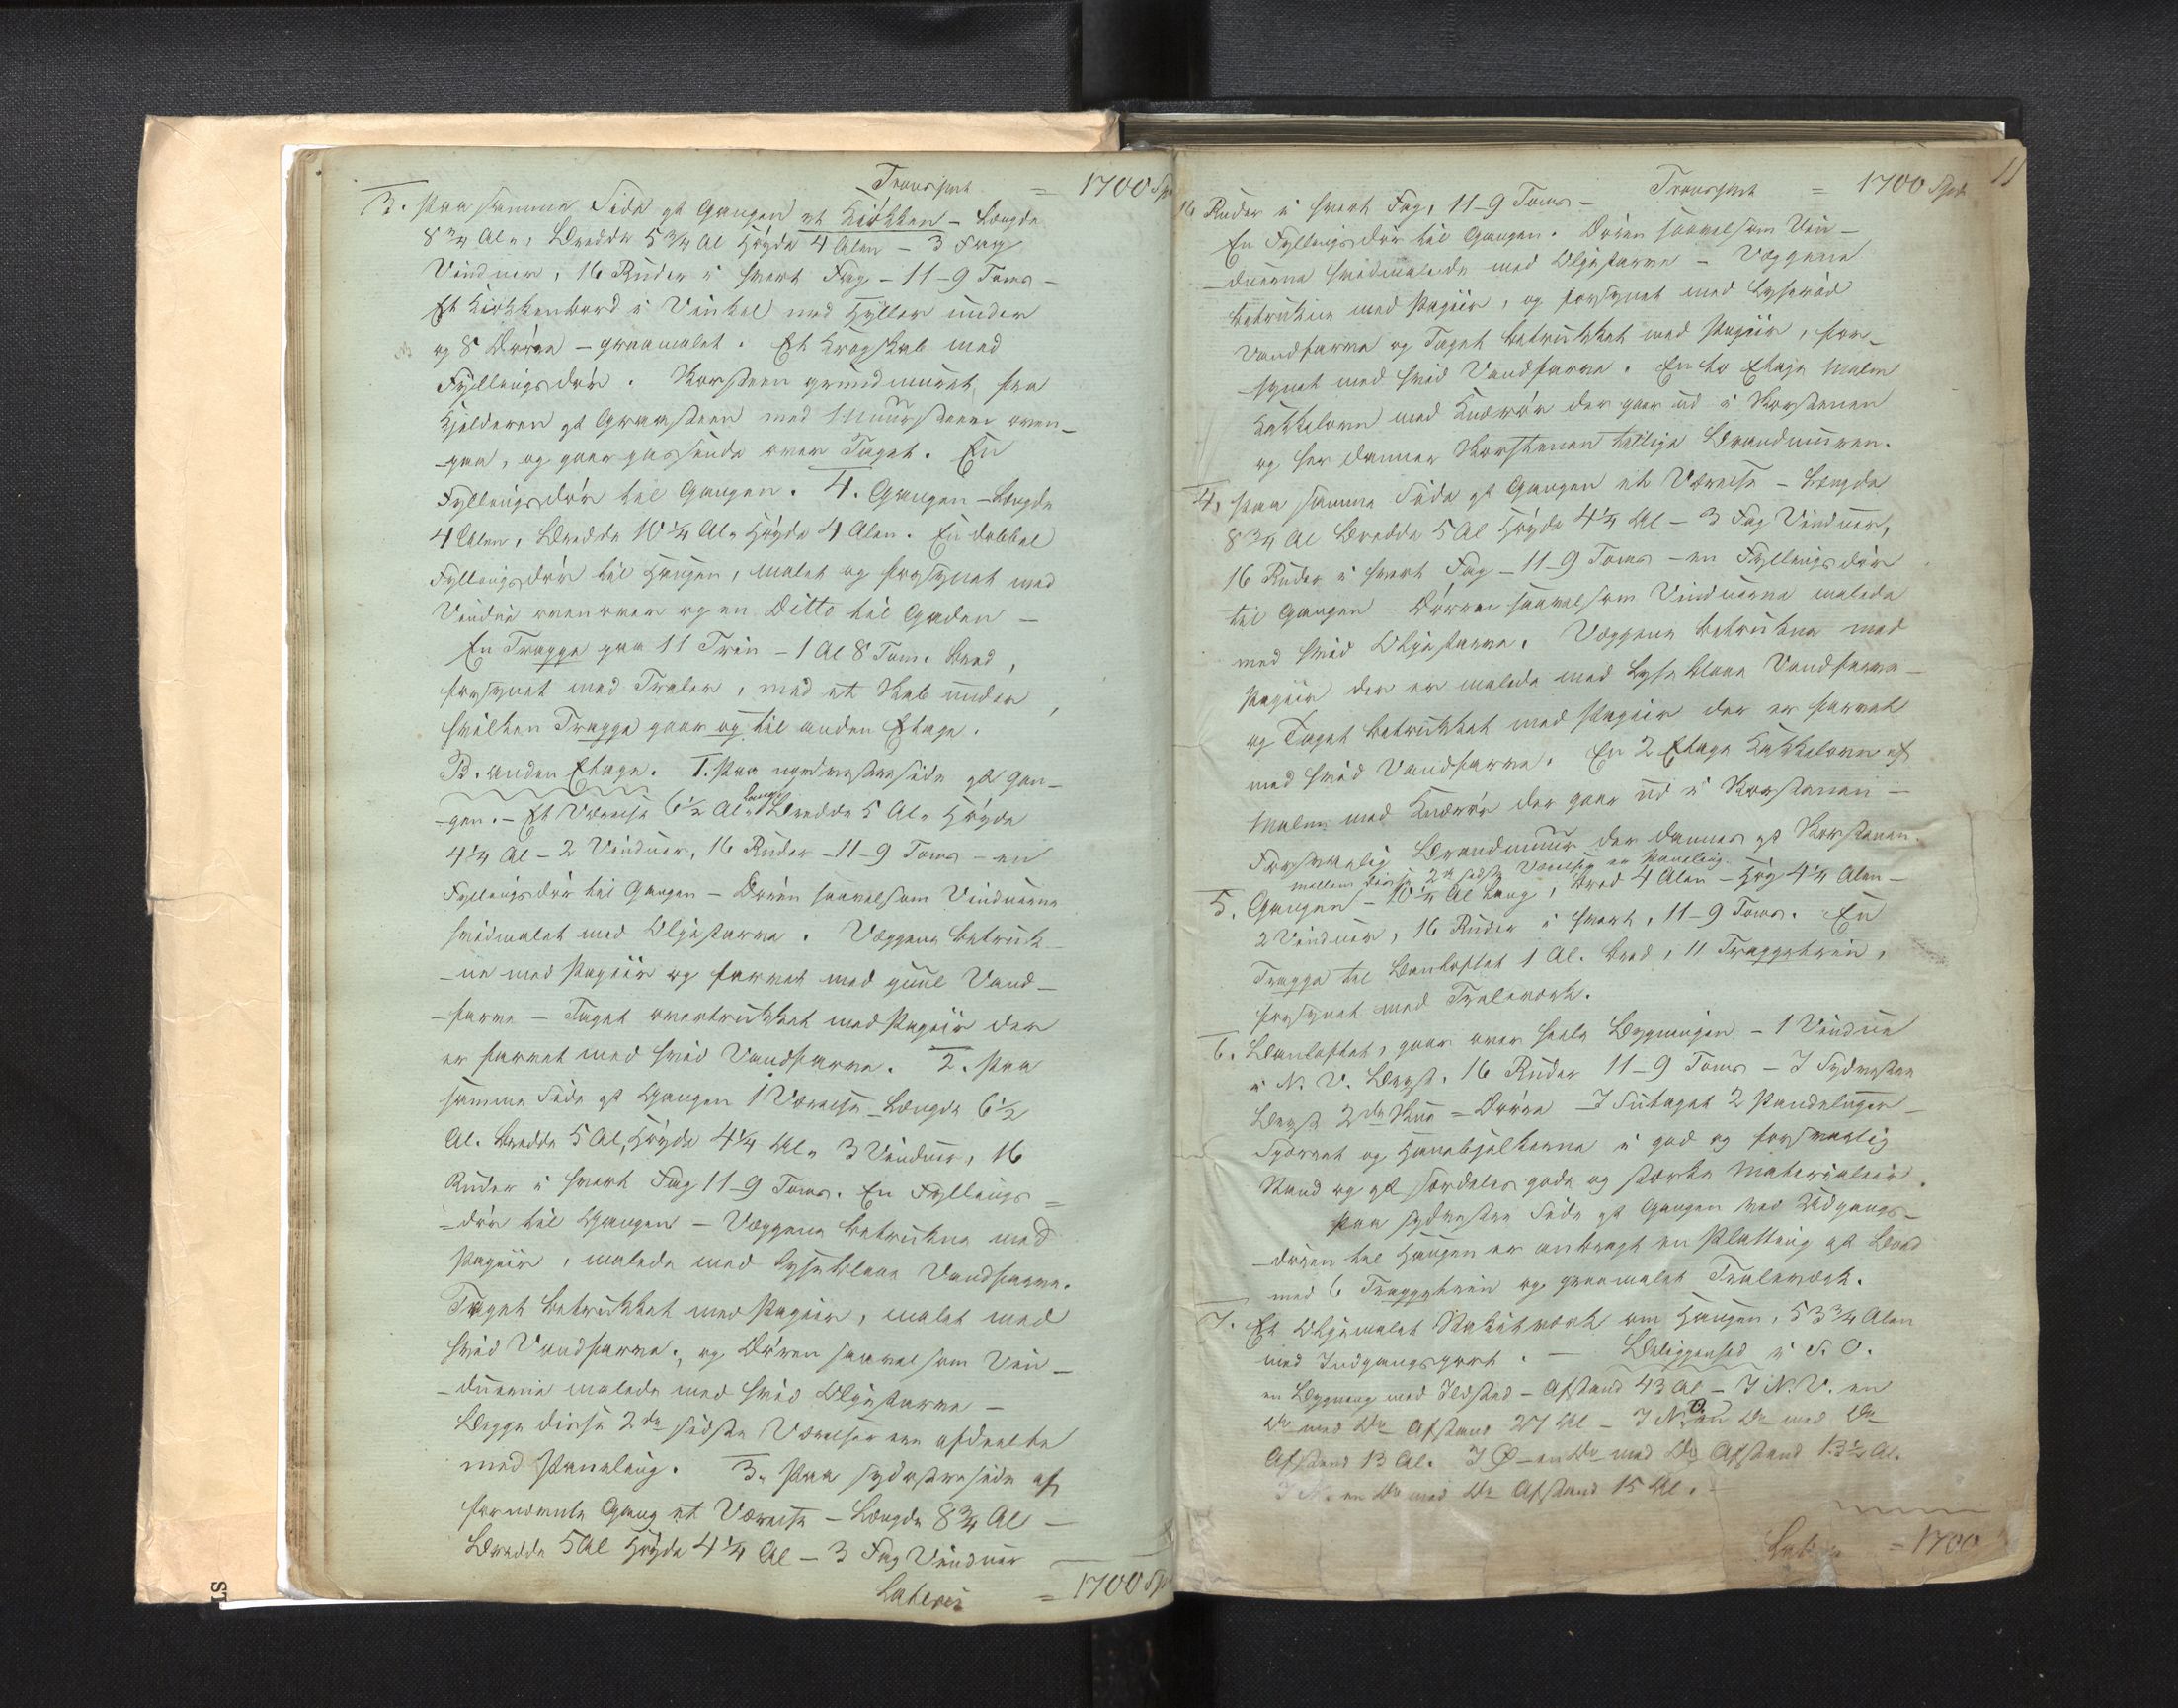 Transport = 1700 Spd
3. Paa samme Side af Gangen et Kiökken – Længde
8 3/4 Al., Bredde 5 3/4 Al Høyde 4 Alen – 3 Fag
Vinduer, 16 Ruder i hvert Fag – 11–9 Toms –
Et Kiökkenbord i Vinkel med Hyller under
og 8 Dørre – graamalet. Et Kragskab med
Fyllingsdør. Skorsteen grundmuret fra
Kjelderen af Graasteen med Muursteen oven-
-paa, og gaar passende over Taget. En
Fyllingsdör til Gangen. 4. Gangen – Længde
4 Alen, Bredde 10 1/4 Al. Høyde 4 Alen. En dobbel
Fyllingsdör til Haugen, malet og forsynet med
Vindue ovenover og en Ditto til Gaden –
En Trappe paa 11 Trin – 1 Al 8 Tom. bred,
forsynet med Traler, med et Skab under,
hvilken Trappe gaar op til anden Etage.
B. Anden Etage. 1. Paa nordvestre side af Gan-
-gen. – Et Værelse 6 1/2 Al. lang Bredde 5 Al. Høyde
4 1/4 Al – 2 Vinduer, 16 Ruder – 11–9 Toms – en
Fyllingsdör til Gangen – Dören saavelsom Vinduerne
hvidmalet med Oljefarve. Væggene betruk-
-ne med Papiir og farvet med guul Vand-
-farve – Taget overtrukket med Papiir der
er farvet med hvid Vandfarve. 2. Paa
samme Side af Gangen 1 Værelse – Længde 6 1/2
Al. Bredde 5 Al, Høyde 4 1/4 Al. 3 Vinduer, 16
Ruder i hvert Fag 11–9 Toms. En Fyllings =
= dör til Gangen – Væggene betrukne med
Papiir, malede med lyseblaae Vandfarve.
Taget betrukket med Papiir, malet med
hvid Vandfarve., og Dören saavelsom Vin-
-duerne malede med hvid Oljefarve –
Begge disse 2de sidste Værelser ere afdeelte
med Paneling. 3. Paa sydostre side af
forannævnte Gang et Værelse – Længde 8 3/4 Al –
Bredde 5 Al Høyde 4 1/4 Al – 3 Fag Vinduer
Lateris = 1700 Spd
11
Transport = 1700 Spd
16 Ruder i hvert Fag, 11–9 Toms –
En Fyllingsdör til Gangen. Dören saavelsom Vin-
-duerne hvidmalede med Oljefarve – Væggene
betrukne med Papiir, og forsynet med Lyseröd
Vandfarve og Taget betrukket med Papiir, for-
-synet med hvid Vandfarve. En to Etage Malm
Kakkelovn med Knærör der gaar ud i Skorstenen
og her danner Skorstenen tillige Brandmuren.
4. Paa samme Side af Gangen et Værelse – Længde
8 3/4 Al Bredde 5 Al Høyde 4 1/4 Al – 3 Fag Vinduer,
16 Ruder i hvert Fag – 11–9 Toms – en Fyllingsdör
til Gangen – Dörren saavelsom Vinduerne malede
med hvid Oljefarve. Væggene betrukne med
Papiir der er malede med Lyse blaae Vandfarve –
og Taget betrukket med Papiir der er farvet
med hvid Vandfarve. En 2 Etage Kakkelovn af
Malm med Knærör der gaar ud i Skorstenen –
Forsvarlig Brandmuur der dannes af Skorstenen.
mellem disse 2de sidste Værelser er Paneling.
5. Gangen – 10 1/4 Al lang, bred 4 Alen – Høy 4 1/4 Alen –
2 Vinduer, 16 Ruder i hvert, 11–9 Toms. En
Trappe til Banloftet 1 Al. bred, 11 Trappetrin,
forsynet med Traleværk.
6. Banloftet, gaar over heele Bygningen – 1 Vindue
i N. V. Bryst. 16 Ruder 11–9 Toms – I Sydvestre
Bryst 2de = Dörre – I Sutaget 2
Sperret og Hanebjelkerne i god og forsvarlig
Stand og af særdeles gode og stærke Materialier.
Paa sydvestre Side af Gangen ved Udgangs-
-dören til Haugen er anbragt en Platting af Bord
med 6 Trappetrin og graamalet Traleværk.
7. Et Oljemalet Stakitværk om Haugen, 53 3/4 Alen
med Indgangsport. – Beliggenhed i S. O.
en Bygning med Ildsted – Afstand 43 Al – I N. V. en
Do med Do Afstand 27 Al – I N. O. en Do med Do
Afstand 13 Al. I Ø – en Do med Do Afstand 13 1/2 Al.
I N. en Do med Do Afstand 15 Al.
Lateris = 1700